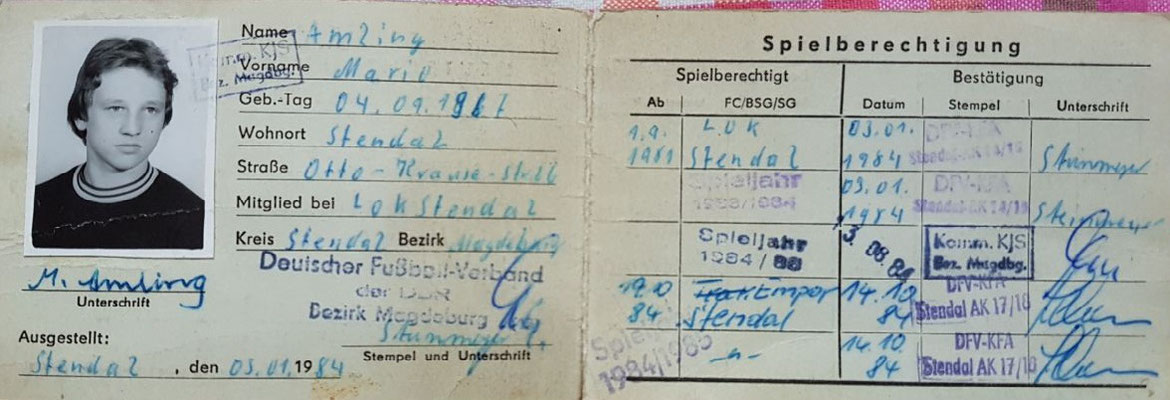 Name Amling
Komm. KJS
Bez. Magdbg.
Vorname Mario
Geb.-Tag 04.09.1967
Wohnort Stendal
Straße Otto-Krause-Str
Mitglied bei Lok Stendal
Kreis Stendal Bezirk Magdeburg
Deutscher Fußball-Verband
der DDR
Bezirk Magdeburg
M. Amling
Unterschrift
Ausgestellt:
Stempel und Unterschrift
Stendal, den 03.01.1984
Spielberechtigung
Spielberechtigt Bestätigung
Ab FC/BSG/SG Datum Stempel Unterschrift
1.9. Lok 03.01. DFV-KFA
1981 Stendal 1984 Stendal AK 14/15
Spieljahr 03.01. DFV-KFA
1983/1984 1984 Stendal AK 14/15
Spieljahr Komm. KJS
1984/ 08.84 Bez. Magdbg.
19.10 Empor 14.10 DFV-KFA
84 Stendal 84 Stendal AK 17/18
14.10. DFV-KFA
-"- 84 Stendal AK 17/18
1984/1985